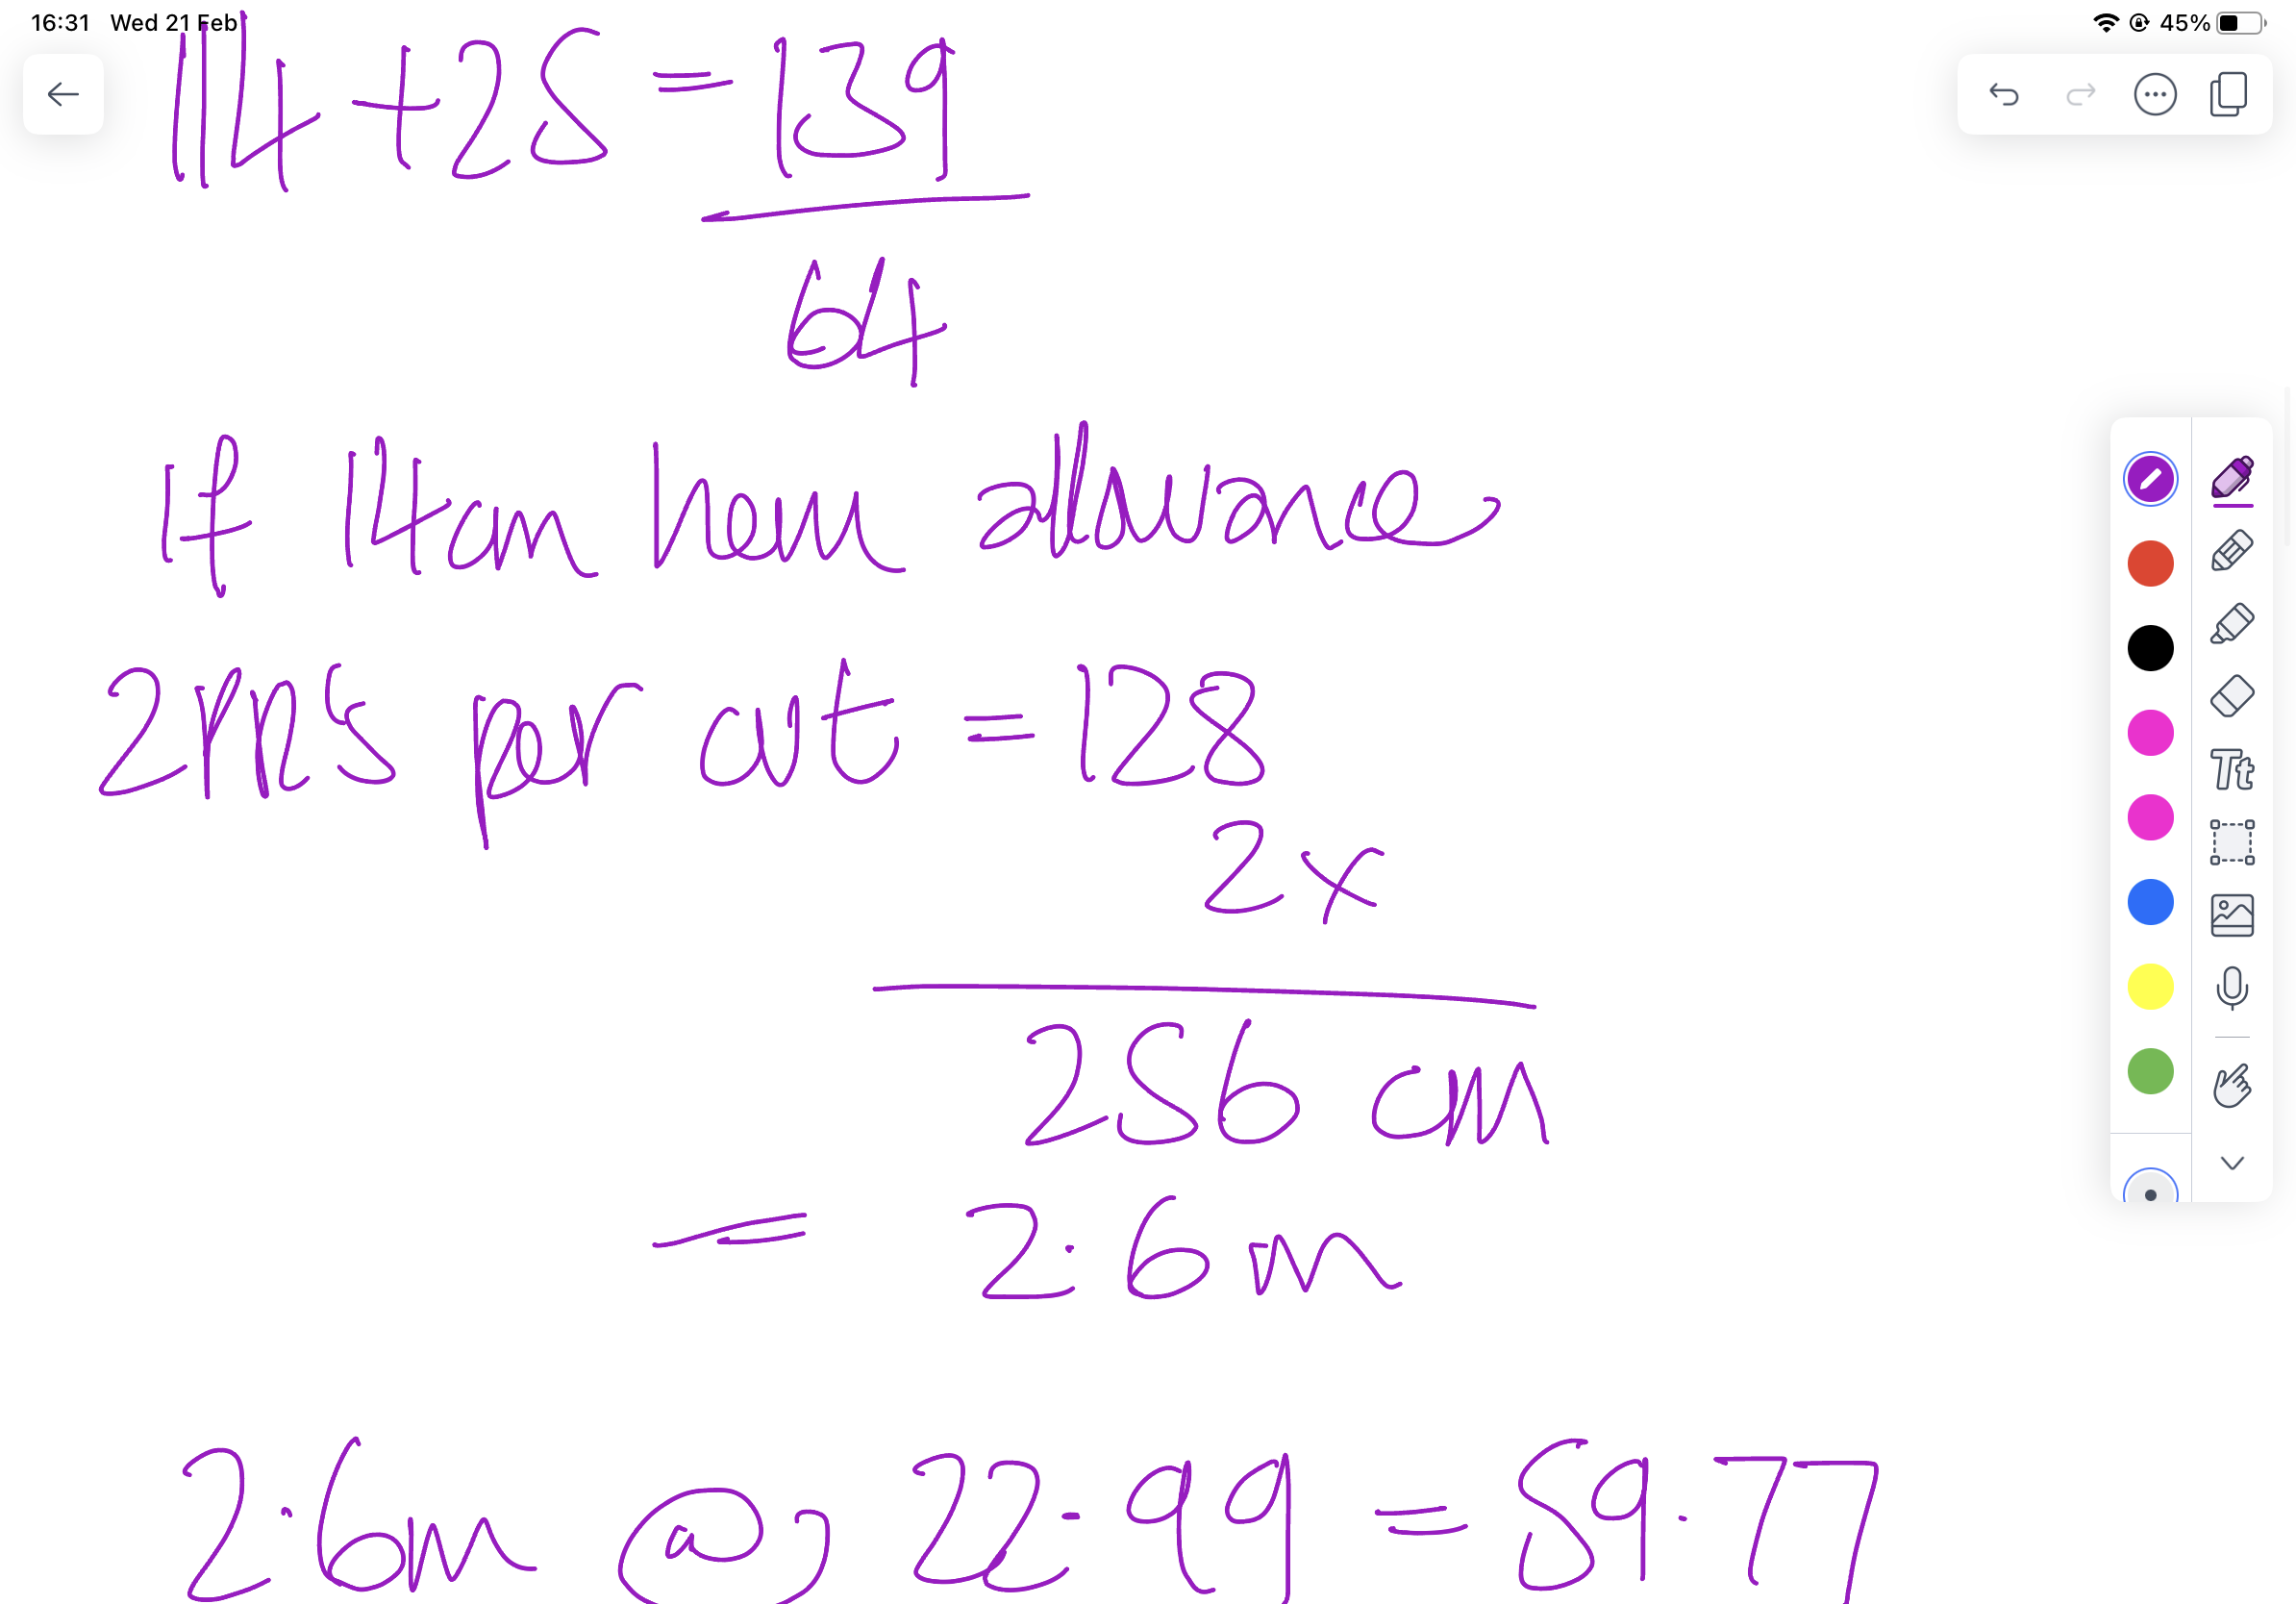 16:31 Wed 21 Feb 45%
114 + 25 = 139
64
If 14cm hem allowance
2 rpts per cut = 128
2 x
256 cm
= 2.6m
2.6m @ 22.99 = 59.77
Tt